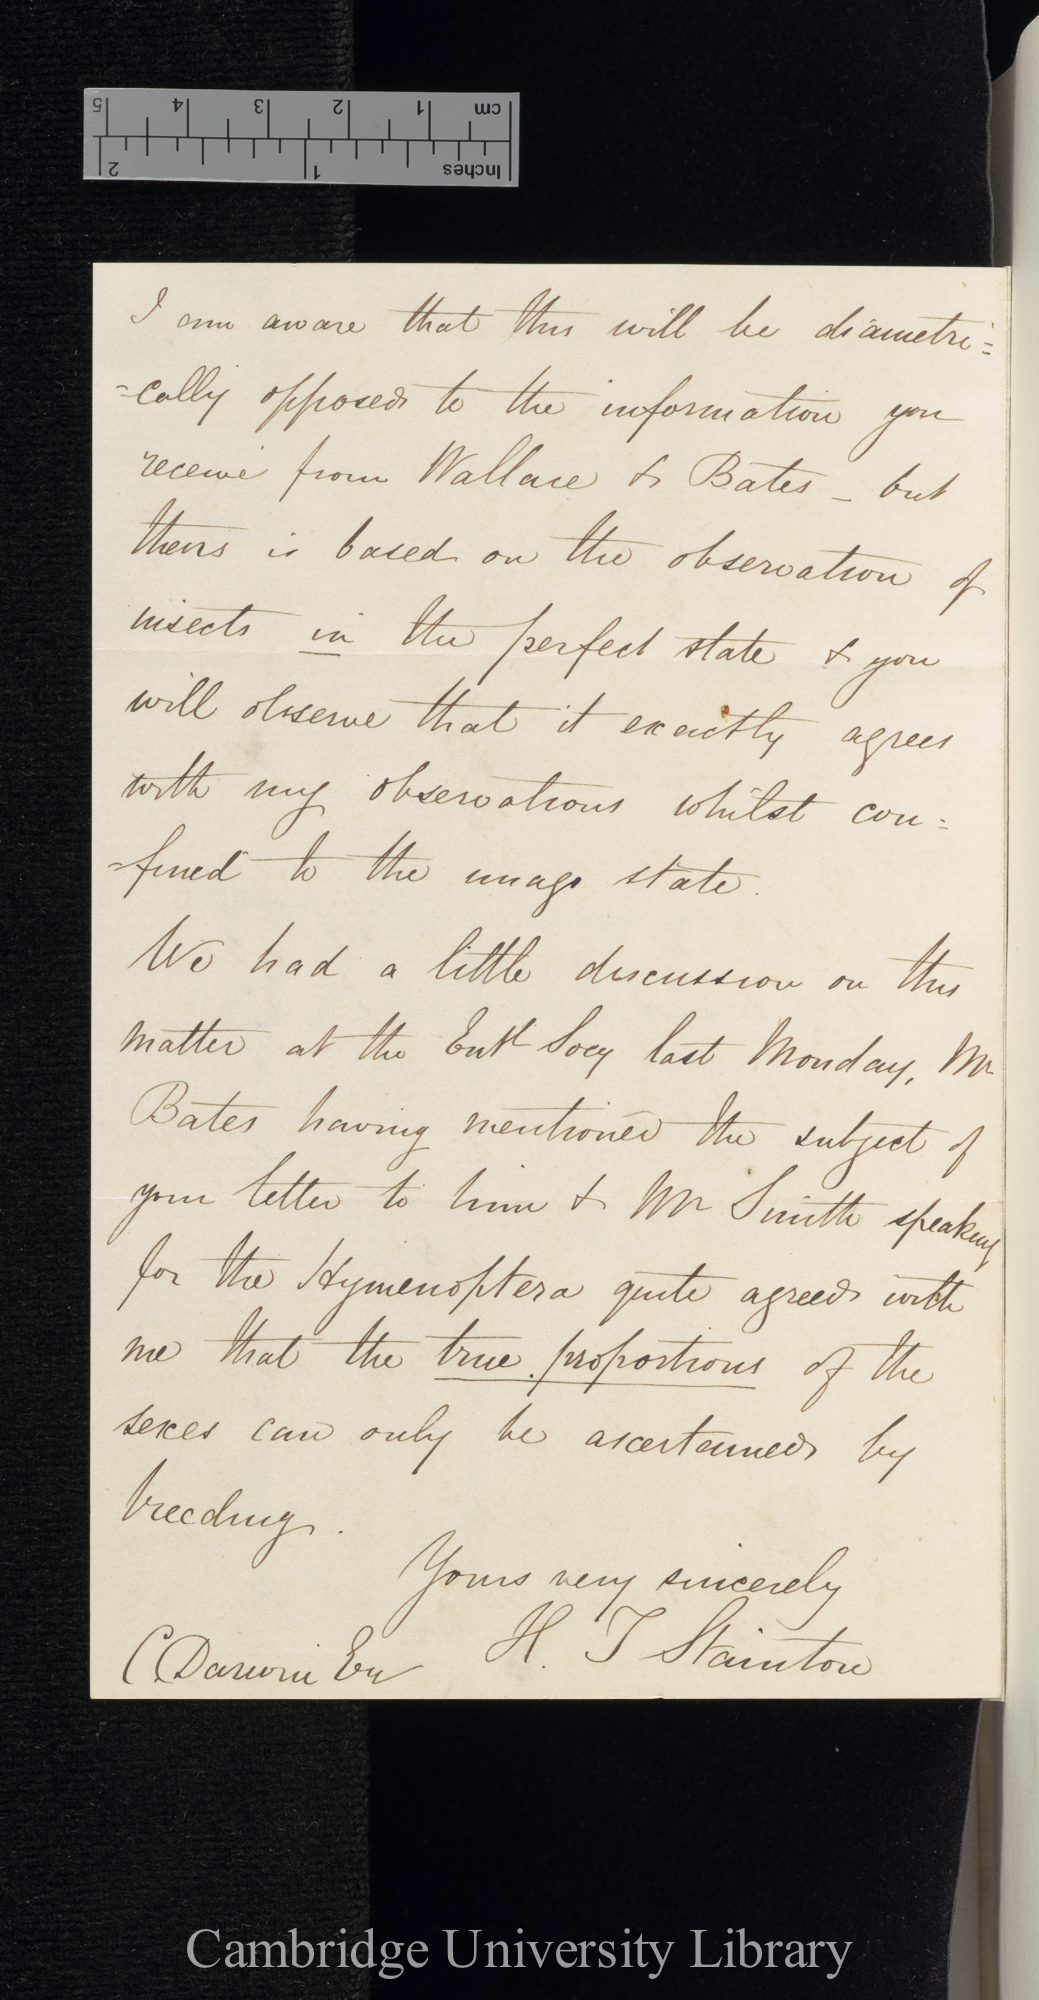 cm 1 2 3 4 5
Inches 1 2
I am aware that this will be diametri=
=cally opposed to the information you
receive from Wallace & Bates – but
theirs is based on the observation of
insects in the perfect state & you
will observe that it exactly agrees
with my observations whilst con=
=fined to the imago state.
We had a little discussion on this
matter at the Entl Socy last Monday, Mr
Bates having mentioned the subject of
your letter to him & Mr Smith speaking
for the Hymenoptera quite agreed with
me that the true proportions of the
sexes can only be ascertained by
breeding.
Yours very sincerely
H. T Stainton
C. Darwin Esq
Cambridge University Library